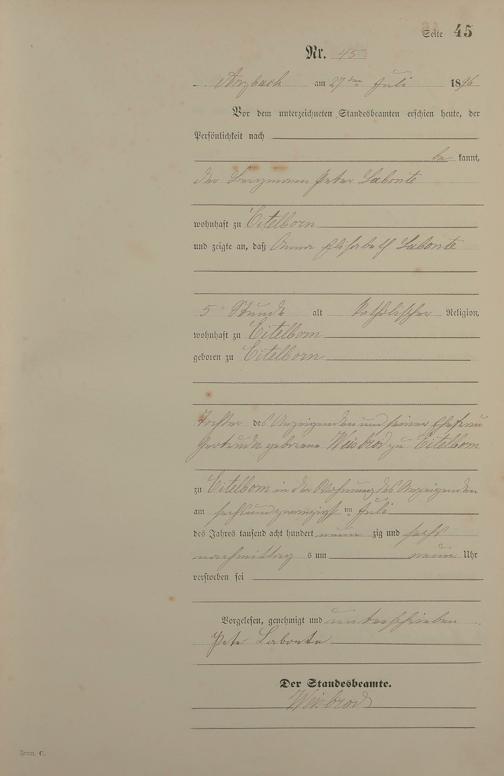 Seite 45
Nr. 45
Arzbach am 27ten Juli 1896
Vor dem unterzeichneten Standesbeamten erschien heute, der
Persönlichkeit nach
be kannt,
der Bergmann Peter Labonte
wohnhaft zu Eitelborn
und zeigte an, daß Anna Elisabeth Labonte
5 Stunde alt katholischer Religion,
wohnhaft zu Eitelborn
geboren zu Eitelborn
Tochter des Anzeigenden und seiner Ehefrau
Gertrude geborene Weisbrod zu Eitelborn
zu Eitelborn in der Wohnung des Anzeigenden
am sechsundzwanzigsten Juli
des Jahres tausend acht hundert neun zig und sechs
nachmittag s um neun Uhr
verstorben sei
Vorgelesen, genehmigt und unterschrieben
Peter Labonte
Der Standesbeamte.
Weisbrod
Form. C.